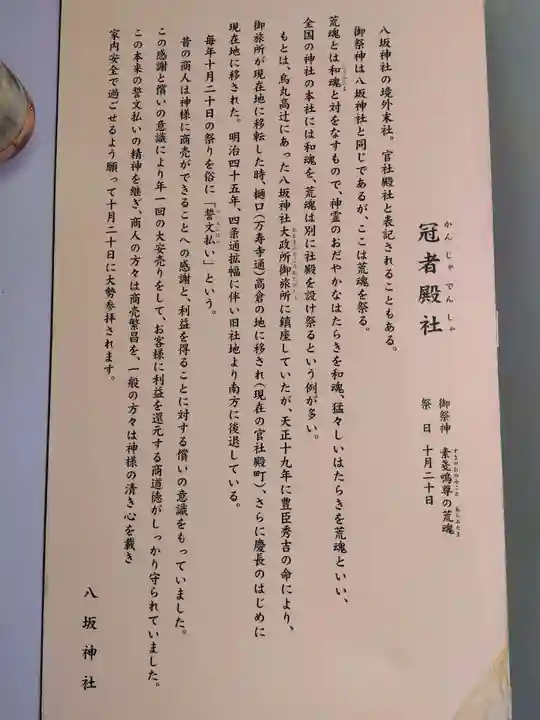 冠者殿社
かんじゃでんしゃ
御祭神 素戔嗚尊の荒魂
すさのおのみこと あらみたま
祭日 十月二十日
八坂神社の境外末社。官社殿社と表記されることもある。
御祭神は八坂神社と同じであるが、ここは荒魂を祭る。
荒魂とは和魂と対をなすもので、神霊のおだやかなはたらきを和魂、猛々しいはたらきを荒魂といい、
全国の神社の本社には和魂を、荒魂は別に社殿を設け祭るという例が多い。
もとは、烏丸高辻にあった八坂神社大政所御旅所に鎮座していたが、天正十九年に豊臣秀吉の命により、
御旅所が現在地に移転した時、樋口(万寿寺通)高倉の地に移され(現在の官社殿町)、さらに慶長のはじめに
現在地に移された。明治四十五年、四条通拡幅に伴い旧社地より南方に後退している。
毎年十月二十日の祭りを俗に「誓文払い」という。
昔の商人は神様に商売ができることへの感謝と、利益を得ることに対する償いの意識をもっていました。
この感謝と償いの意識により年一回の大安売りをして、お客様に利益を還元する商道徳がしっかり守られていました。
この本来の誓文払いの精神を継ぎ、商人の方々は商売繁昌を、一般の方々は神様の清き心を戴き
家内安全で過ごせるよう願って十月二十日に大勢参拝されます。
八坂神社